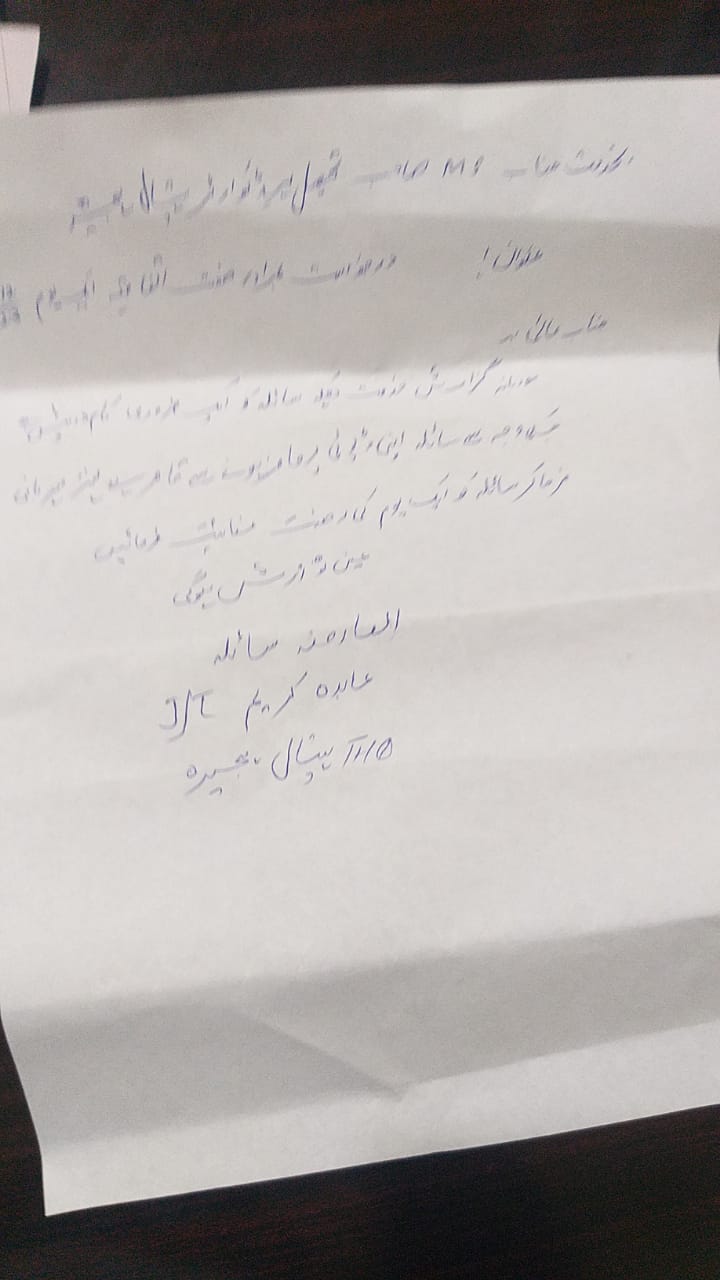 بخدمت جناب MS صاحب تحصیل ہیڈ کوارٹر ہسپتال ہجیرہ
عنوان! درخواست بمراد رخصت اتفاقیہ ایک یوم
جناب عالی!
مودبانہ گزارش خدمت ہیکہ سائلہ کو ایک ضروری کام درپیش ہے
جس وجہ سے سائلہ اپنی ڈیوٹی پر حاضر ہونے سے قاصر ہے مہربانی
فرما کر سائلہ کو ایک یوم کی رخصت عنایت فرمائیں
عین نوازش ہوگی
العارضہ سائلہ
عابدہ کریم J/T
THQ ہسپتال ہجیرہ